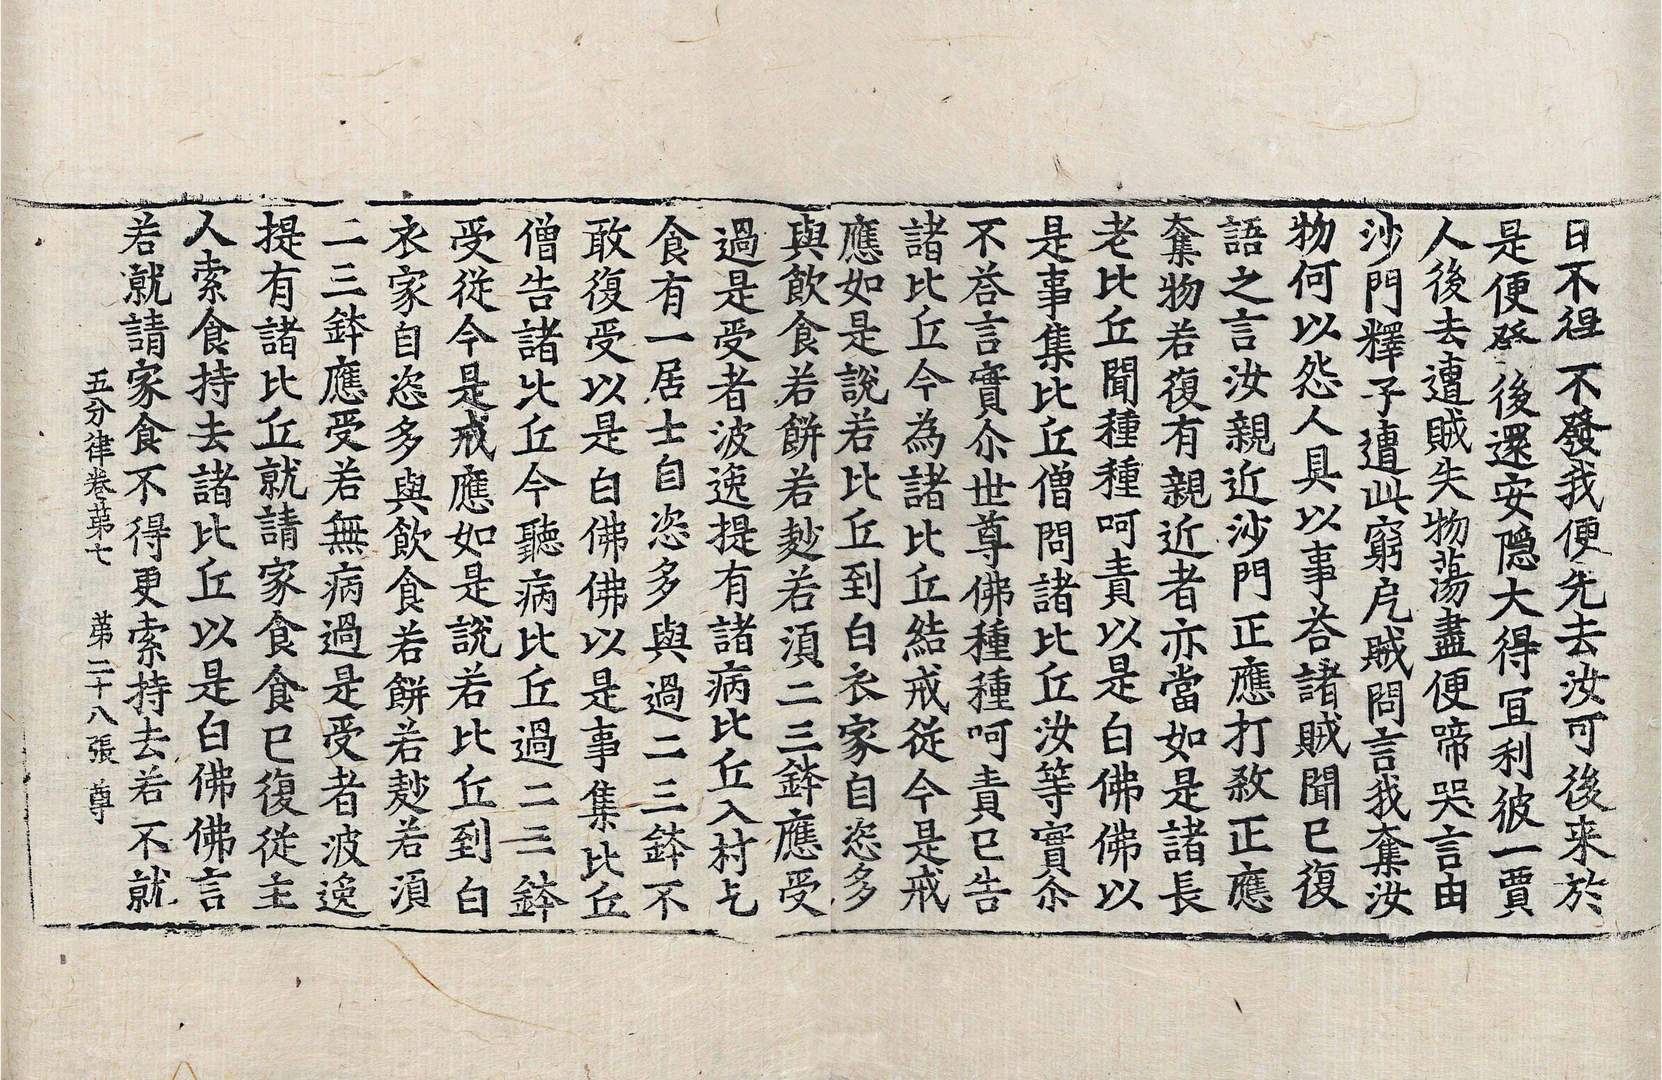 日不得不發我便先去汝可後来於
是便發後還安隱大得冝利彼一賈
人後去遭賊失物蕩盡便啼哭言由
沙門釋子遭此窮厄賊問言我奪汝
物何以怨人具以事荅諸賊聞已復
語之言汝親近沙門正應打敘正應
奪物若復有親近者亦當如是諸長
老比丘聞種種呵責以是白佛佛以
是事集比丘僧問諸比丘汝等實尒
不荅言實尒世尊佛種種呵責已告
諸比丘今為諸比丘結戒従今是戒
應如是說若比丘到白衣家自恣多
與飲食若餅若麨若湏二三鉢應受
過是受者波逸提有諸病比丘入村乞
食有一居士自恣多與過二三鉢不
敢復受以是白佛佛以是事集比丘
僧告諸比丘今聽病比丘過二三鉢
受從今是戒應如是說若比丘到白
衣家自恣多與飲食若餅若麨若湏
二三鉢應受若無病過是受者波逸
提有諸比丘就請家食食已復從主
人索食持去諸比丘以是白佛佛言
若就請家食不得更索持去若不就
五分律卷苐七 苐二十八張 尊